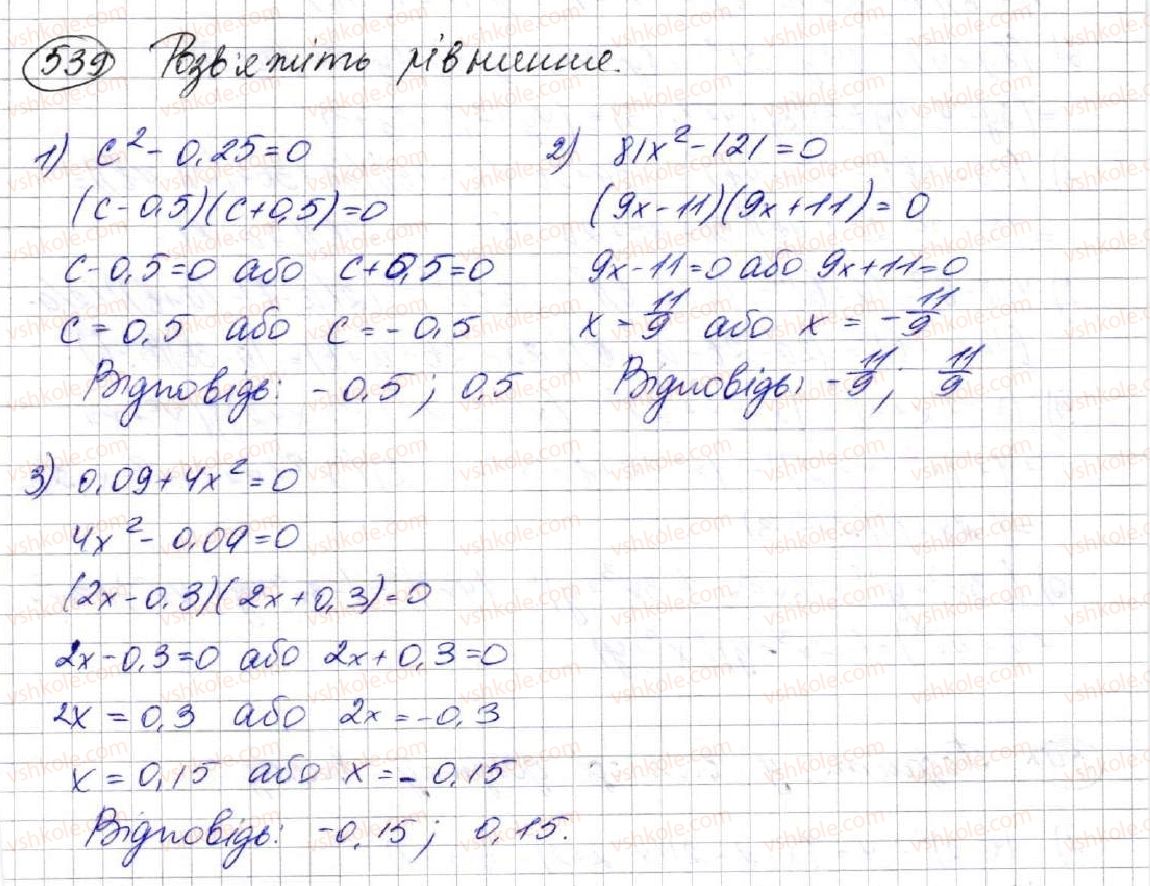 539 Розв'яжіть рівняння.
1) c² - 0,25 = 0
(c - 0,5)(c + 0,5) = 0
c - 0,5 = 0 або c + 0,5 = 0
c = 0,5 або c = - 0,5
Відповідь: - 0,5 ; 0,5
2) 81x² - 121 = 0
(9x - 11)(9x + 11) = 0
9x - 11 = 0 або 9x + 11 = 0
x = 11/9 або x = - 11/9
Відповідь: - 11/9 ; 11/9
3) 0,09 + 4x² = 0
4x² - 0,09 = 0
(2x - 0,3)(2x + 0,3) = 0
2x - 0,3 = 0 або 2x + 0,3 = 0
2x = 0,3 або 2x = - 0,3
x = 0,15 або x = - 0,15
Відповідь: - 0,15 ; 0,15.